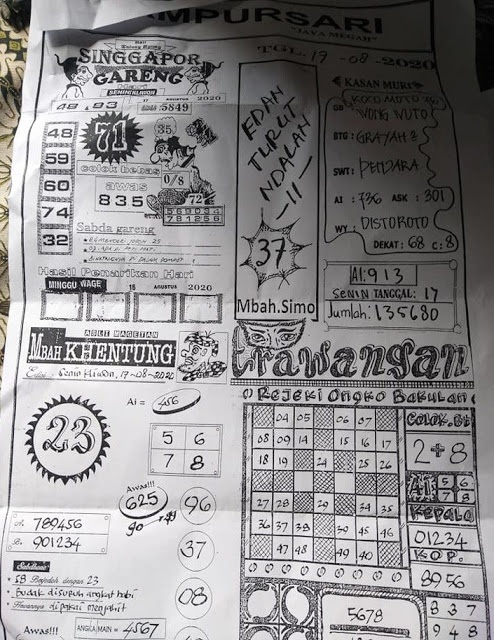 AMPURSARI
"JAVA MEGAH"
TGL. 17 -08-2020
SINGGAPOR
GARENG
48 - 83
17 AGUSTUS 2020
5849
48
59
60
74
32
71
35
colok bebas
0/8
awas
835
72
781256
Sabda gareng
Hasil Penarikan Hari
MINGGU WAGE 16 AGUSTUS 2020
EDAN
TURUT
NDALAN
-11-
37
Mbah.Simo
KASAN MURI
WONG WUTO
BTG : GRAYAH 2
SWT : PENJARA
AI : 736 ASK : 301
WY : DISTOROTO
DEKAT : 68 C : 8
AI: 913
SENIN TANGGAL: 17
Jumlah: 135680
ASLI MAGETAN
MBAH KHENTUNG
17-08-2020
23
Ai = 456
5 6
7 8
Awas!!!
625
go
96
37
08
A. 789456
B. 901234
58 Berjodoh dengan 23
Awas!!! ANGKA MAIN = 4567
trawangan
Rejeki Ongko Bakulan
04 05 06 07
08 09 14 15 16 17
18 19 24 25 26
27 28 29 34 35
36 37 38 39 45 46
47 48 49 40
2+8
AI 5 6
7 8
KEPALA
01234
KOP.
8956
5678
837
948